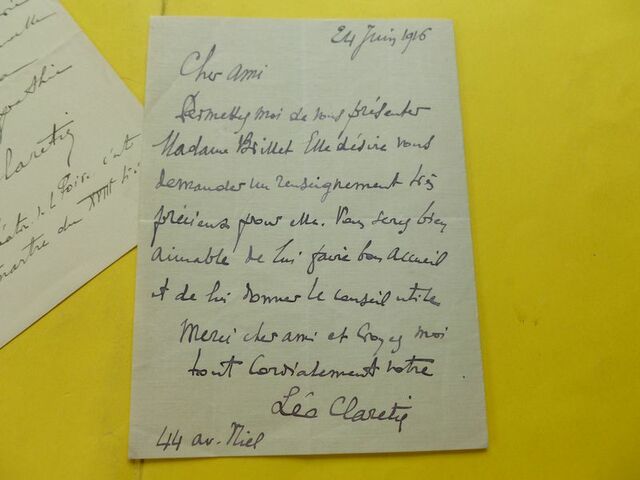 24 Juin 1916
Cher ami
Permettez moi de vous présenter
Madame Brillet Elle désire vous
demander un renseignement très
précieux pour elle. Vous serez bien
aimable de lui faire bon accueil
et de lui donner le conseil utile
Merci cher ami et croyez moi
tout cordialement votre
Léo Claretie
44 av. Niel
Claretie
du XVIIIe